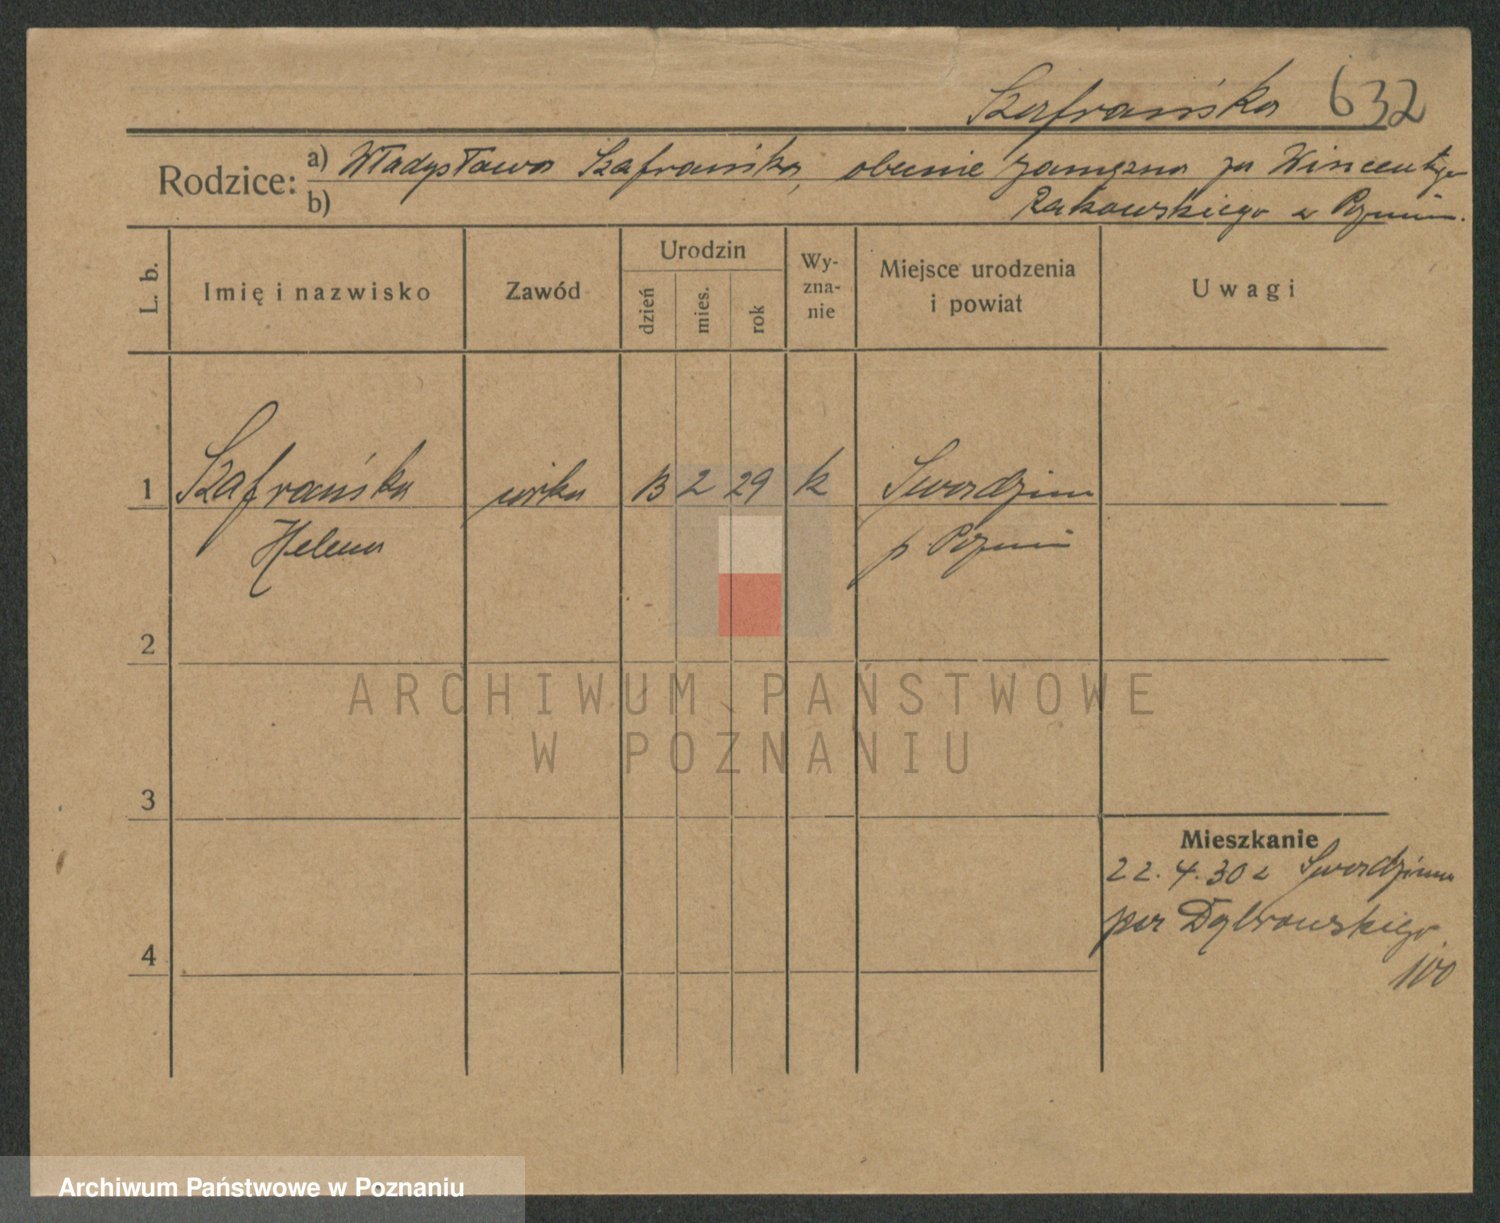 Szafrańska 632
Rodzice: a) Władysława Szafrańska, obecnie zamężna za Wincentego
b) Rakowskiego w Poznaniu.
L. b. Imię i nazwisko Zawód Urodzin dzień mies. rok Wy- zna- nie Miejsce urodzenia i powiat Uwagi
1 Szafrańska córka 13 2 29 k Swordzim
Helena p. Poznań
2
ARCHIWUM PAŃSTWOWE
W POZNANIU
3
Mieszkanie
22.4.30 z Swordzima
per Dąbrowskiego
4
100
Archiwum Państwowe w Poznaniu